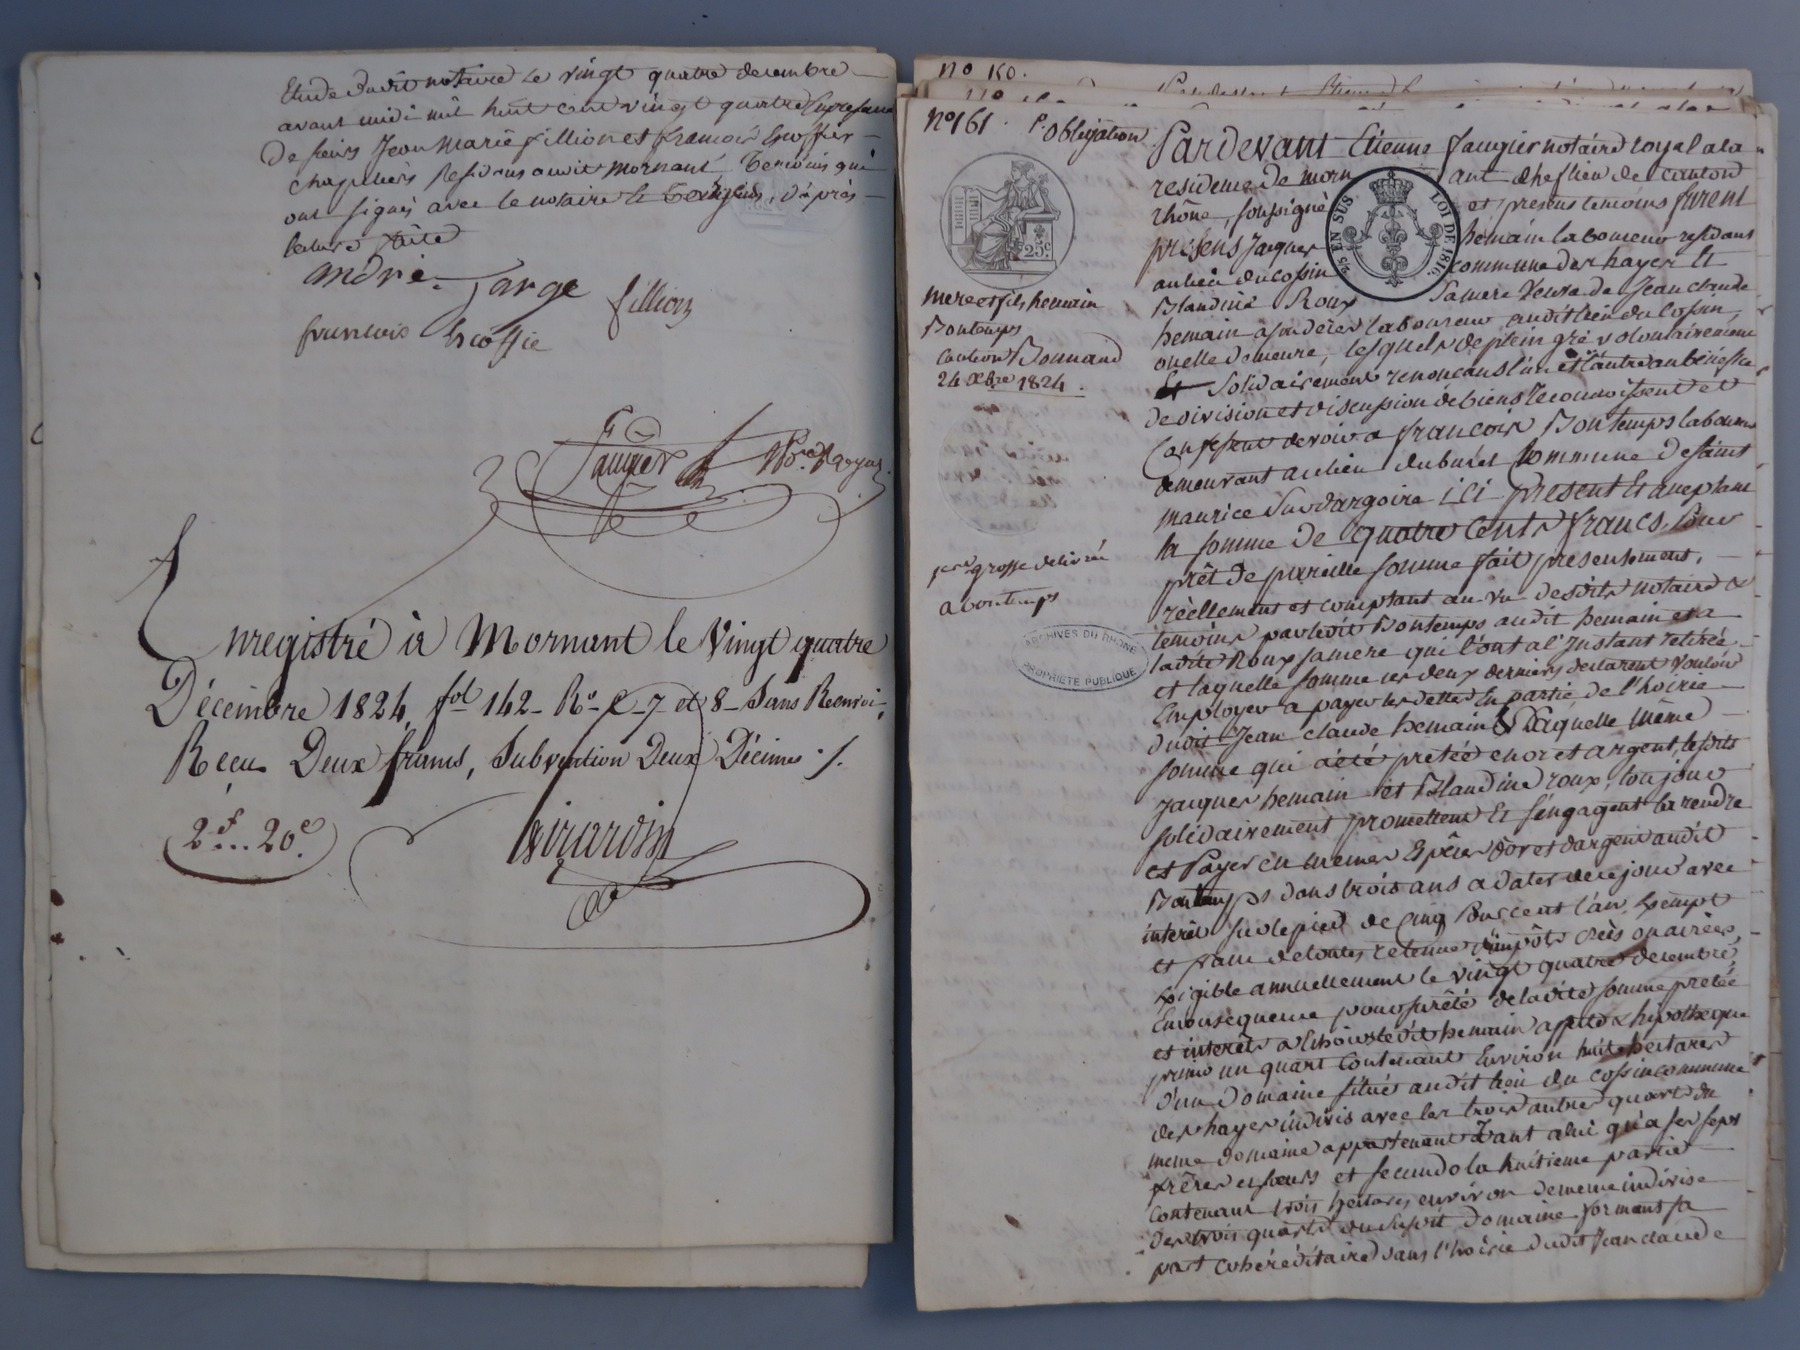 Etude dudit notaire le vingt quatre decembre
avant midi mil huit cent vingt quatre En presence
de sieurs Jean Marie fillion et francois Escoffier
chapeliers Residens audit Mornant Temoins qui
ont signés avec le notaire le Sergens, d'après
lecture faite
andré jarge fillion
francois Escoffie
Faugier Nre Royal
Enregistré à Mornant le Vingt quatre
Décembre 1824, fol 142 Ro C 7 et 8 Sans Renvoi
Recu Deux francs, Subvention Deux Décimes
2f.. 20c.
Girardin
no 160.
no 161. Obligation
mere et fils hemain
Bontemps
caution Bonnand
24 xbre 1824.
1ere grosse delivrée
a bontemps
ARCHIVES DU RHÔNE
PROPRIÉTÉ PUBLIQUE
25c
2/5 EN SUS
LOI DE 1816.
Pardevant Etienne faugier notaire royal a la
residence de morn ant chef lieu de canton
rhône, soussigné et presens temoins furent
presens Jacques hemain laboureur residant
au lieu du cossin commune des hayes Et
Blandine Roux Sa mere Veuve de Jean claude
hemain a son deces laboureur audit lieu du Cossin,
ou elle demeure, lesquels de plein gré volontairement
Et Solidairement renoncans l'un et l'autre au bénéfice
de division et discussion de biens Reconnoissent et
Confessent devoir a francois Bontemps laboureur
demeurant au lieu du buret Commune de saint
maurice Sur dargoire ici present Et acceptant
la somme de quatre cents francs, Pour
prêt de pareille somme fait presentement,
réellement et comptant au vu desdits notaire &
temoins par ledit Bontemps audit hemain et a
ladite Roux sa mere qui l'ont a l'Instant retirée
et laquelle somme ces deux derniers declarent vouloir
Employer a payer les dettes En partie de l'hoirie
dudit Jean claude hemain & Laquelle Même
somme qui a été pretée en or et argent, lesdits
Jacques hemain et Blandine roux, toujours
solidairement promettent Et s'engagent la rendre
et Payer en memes Espèces d'or et d'argent audit
Bontemps dans trois ans a dater de ce jour avec
interêt sur le pied de Cinq Pour cent l'an Exempt
et franc de toutes retenue d'impôts créés ou a créer,
Exigible annuellement le vingt quatre decembre,
En consequence pour sureté de ladite somme pretée
et interêts a Echoir ledit hemain affecte & hipotheque
primo un quart Contenant Environ huit hectares
d'un domaine situé audit lieu du cossin commune
des hayes indivis avec les trois autres quart du
meme domaine appartenant Tant a lui qu'a ses sept
frères et soeurs et secundo la huitieme partie
contenant trois hectares environ de meme indivise
des trois quarts du susdit domaine formant sa
part cohéréditaire dans l'hoirie dudit Jean claude